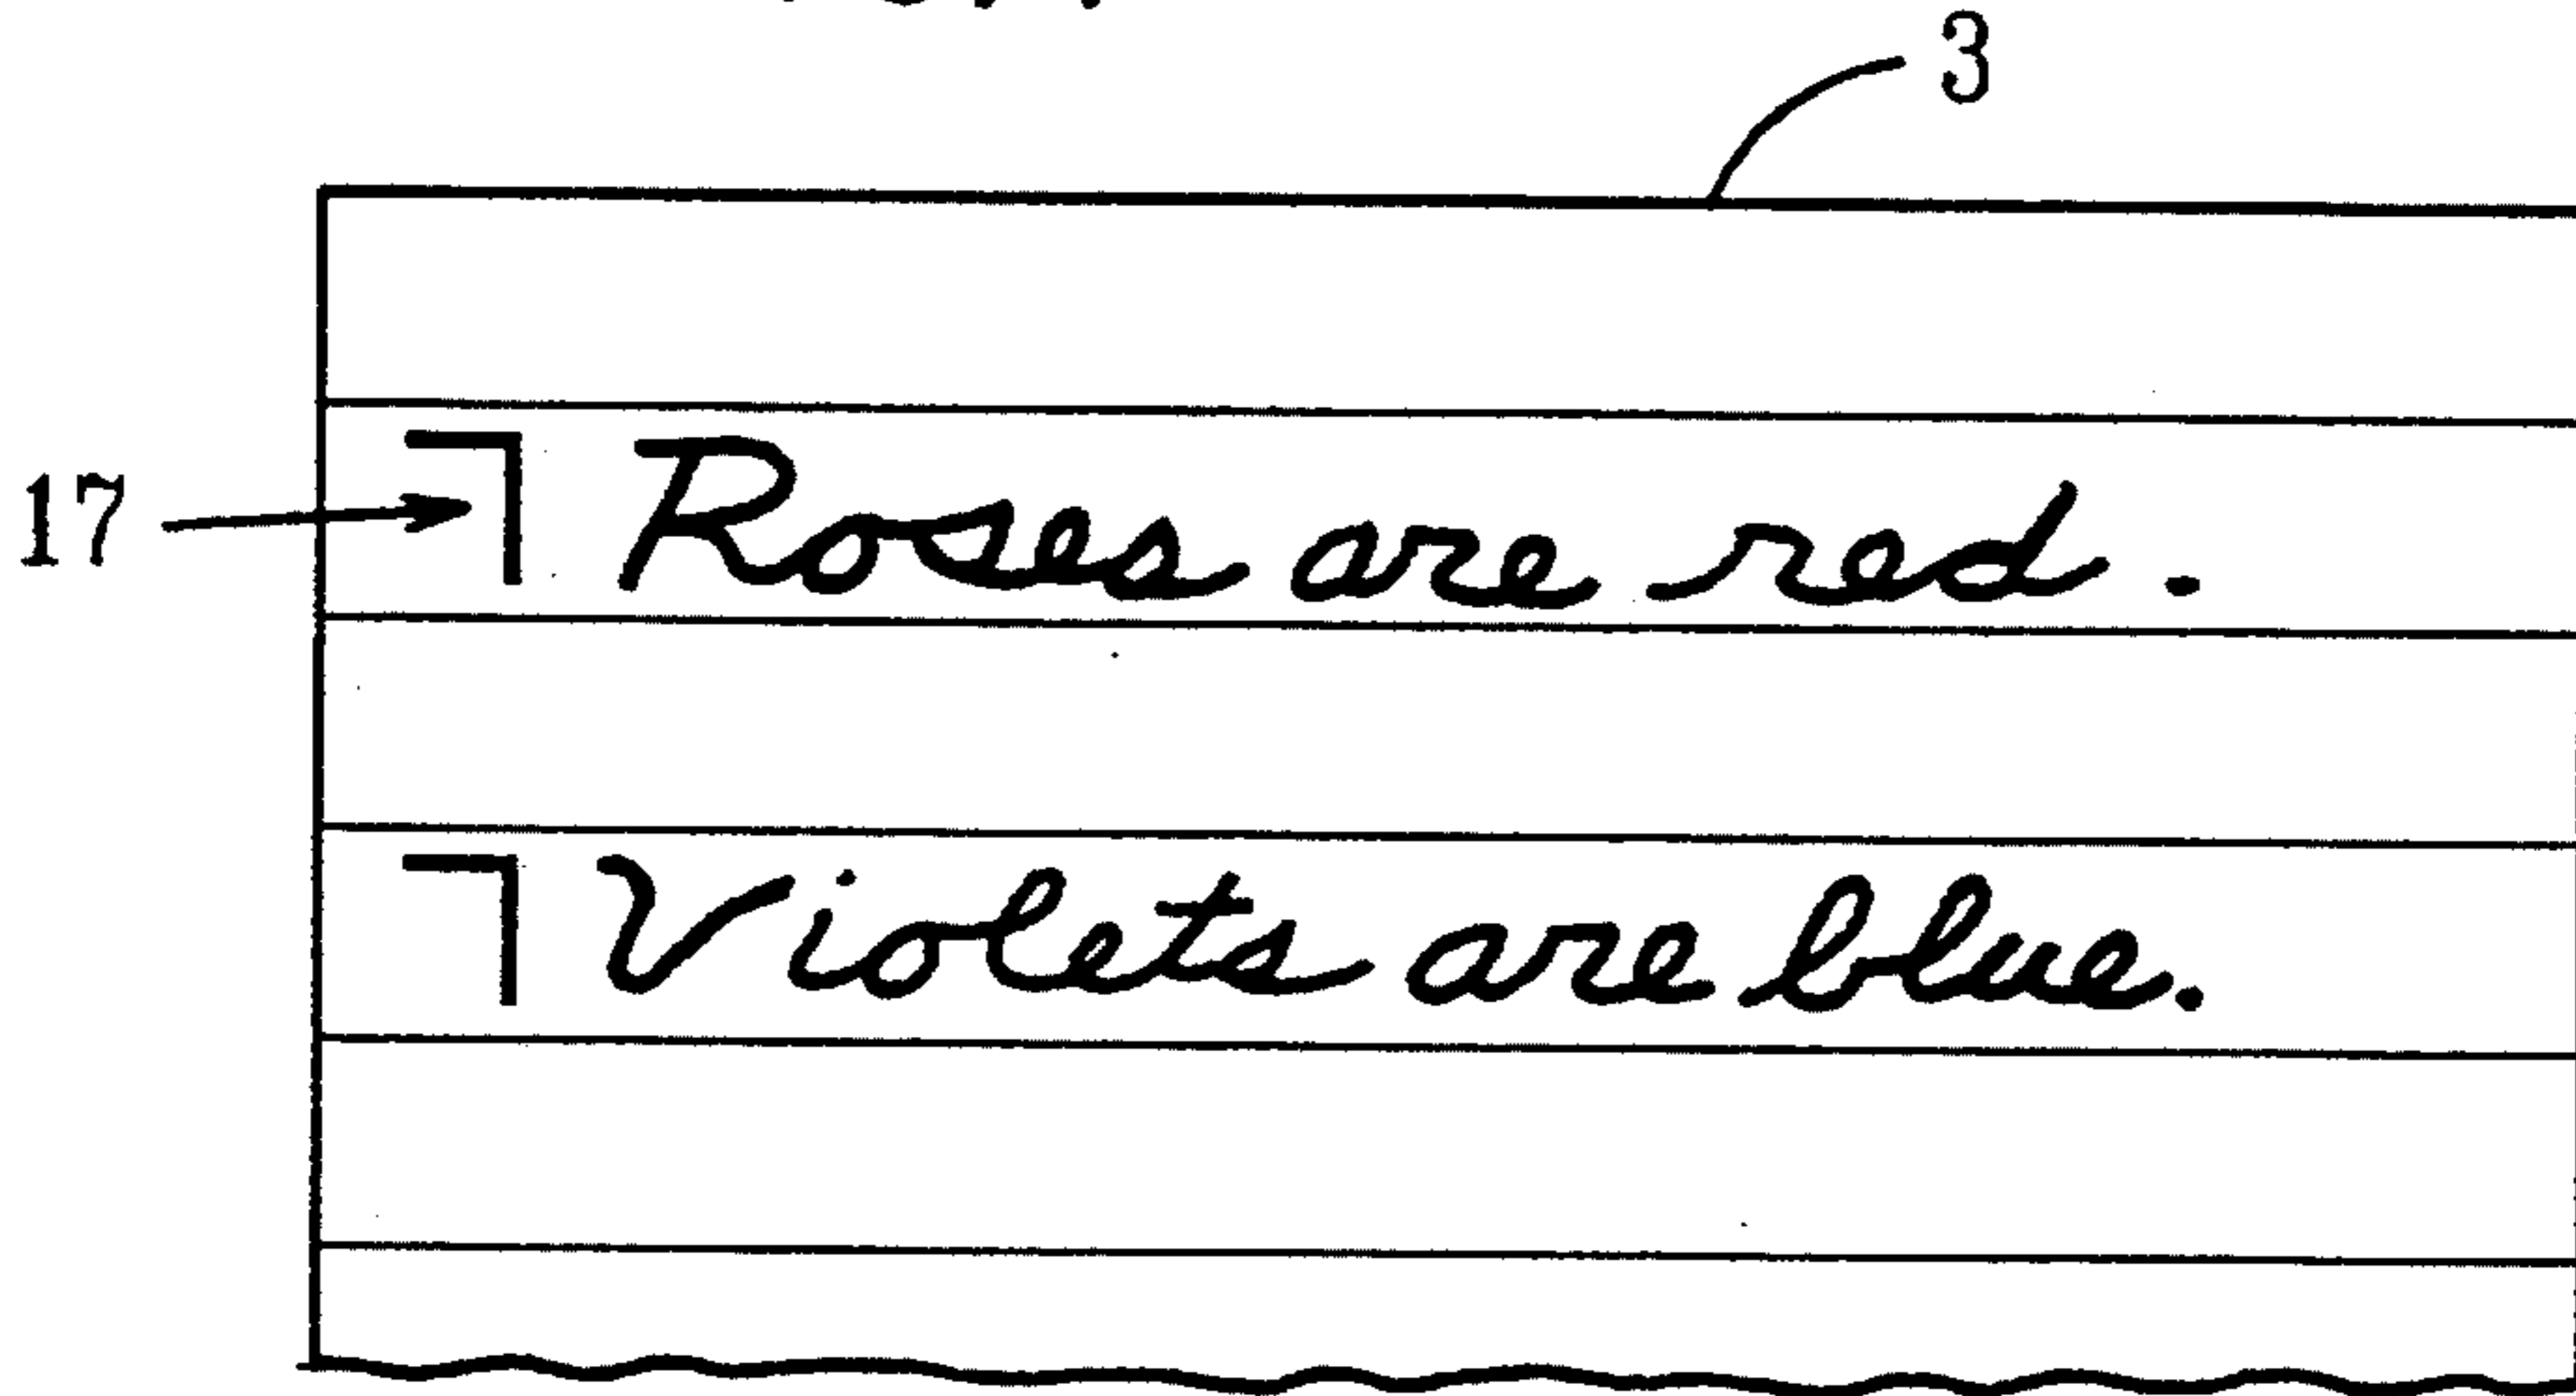 3
17
Roses are red.
Violets are blue.